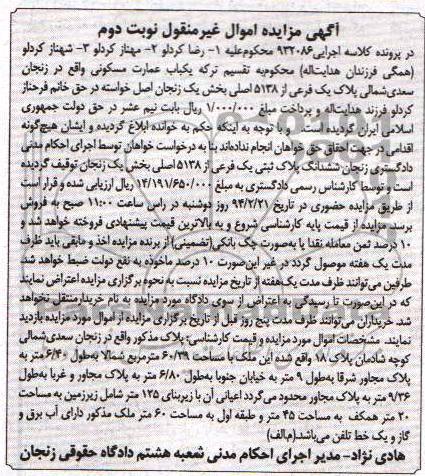 آگهی مزایده اموال غیرمنقول نوبت دوم
در پرونده کلاسه اجرایی۹۳۲۰۸۶ محکوم‌علیه ۱- رضا کردلو ۲- مهناز کردلو ۳- شهناز کردلو
(همگی فرزندان هدایت‌اله) محکوم‌به تقسیم ترکه یکباب عمارت مسکونی واقع در زنجان
سعدی‌شمالی پلاک یک فرعی از ۵۱۳۸ اصلی بخش یک زنجان اصل خواسته در حق خانم فرحناز
کردلو فرزند هدایت‌اله و پرداخت مبلغ ۱/۰۰۰/۰۰۰ ریال بابت نیم عشر در حق دولت جمهوری
اسلامی ایران گردیده است. و با توجه به اینکه حکم به خوانده ابلاغ گردیده و ایشان هیچ‌گونه
اقدامی از جهت احقاق حق خواهان انجام نداده‌اند بنا به درخواست خواهان توسط اجرای احکام مدنی
دادگستری زنجان ششدانگ پلاک ثبتی یک فرعی از ۵۱۳۸ اصلی بخش یک زنجان توقیف گردیده
است و توسط کارشناس رسمی دادگستری به مبلغ ۱۴/۱۹۱/۶۵۰/۰۰۰ ریال ارزیابی شده و قرار است
از طریق مزایده حضوری در تاریخ ۹۴/۲/۲۱ روز دوشنبه در راس ساعت ۱۱:۰۰ صبح به فروش
برسد. مزایده از قیمت پایه کارشناسی شروع و به بالاترین قیمت پیشنهادی فروخته خواهد شد و
۱۰ درصد ثمن معامله نقدا یا به‌صورت چک بانکی(تضمینی) از برنده مزایده اخذ و مابقی باید ظرف
مدت یک هفته موصول گردد در غیر این‌صورت ۱۰ درصد ماخوذه به نفع دولت ضبط خواهد شد
طرفین می‌توانند ظرف مدت یک‌هفته از تاریخ مزایده نسبت به نحوه برگزاری مزایده اعتراض نمایند
که در این‌صورت تا رسیدگی به اعتراض از سوی دادگاه مورد مزایده به نام خریدارمنتقل نخواهد
شد. خریداران می‌توانند ظرف مدت پنج روز قبل از تاریخ برگزاری مزایده از اموال مورد مزایده بازدید
نمایند. مشخصات اموال مورد مزایده و قیمت کارشناسی: پلاک مذکور واقع در زنجان سعدی‌شمالی
کوچه شادمان پلاک ۱۸ واقع شده این ملک با مساحت ۶۰/۳۹ مترمربع شمالا به‌طول ۶/۴۰ متر به
پلاک مجاور شرقا به‌طول ۹ متر به خیابان جنوبا به‌طول ۶/۸۰ متر به پلاک مجاور و غربا به‌طول
۹/۳۶ متر به پلاک مجاور محدود می‌گردد اعیانی آن با زیربنای ۱۲۵ متر شامل زیرزمین به مساحت
۲۰ متر همکف به مساحت ۴۵ متر و طبقه اول به مساحت ۶۰ متر ملک مذکور دارای آب برق و
گاز و یک خط تلفن می‌باشد.(م‌الف)
هادی نژاد- مدیر اجرای احکام مدنی شعبه هشتم دادگاه حقوقی زنجان